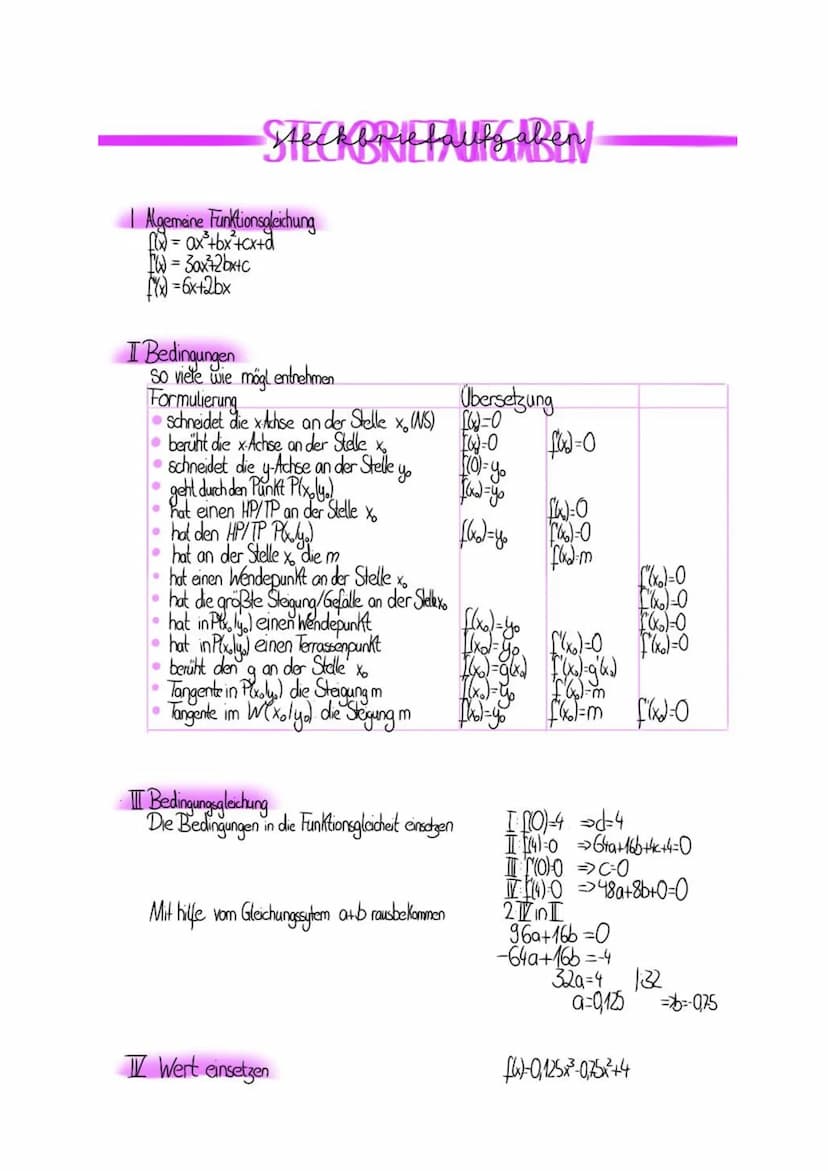 STECKBRIEFAUFGABEN
Steckbriefaufgaben
I Algemeine Funktionsgleichung
f(x) = ax³+bx²+cx+d
f'(x) = 3ax²+2bx+c
f''(x) = 6x+2bx
II Bedingungen
so viele wie mögl. entnehmen
Formulierung Übersetzung
• schneidet die x-Achse an der Stelle x₀ (NS) f(x₀)=0
• berüht die x-Achse an der Stelle x₀ f(x₀)=0 f'(x₀)=0
• schneidet die y-Achse an der Stelle y₀ f(0)=y₀
• geht durch den Punkt P(x₀|y₀) f(x₀)=y₀
• hat einen HP/TP an der Stelle x₀ f'(x₀)=0
• hat den HP/TP P(x₀|y₀) f(x₀)=y₀ f'(x₀)=0
• hat an der Stelle x₀ die m f'(x₀)=m
• hat einen Wendepunkt an der Stelle x₀ f''(x₀)=0
• hat die größte Steigung/Gefälle an der Stelle x₀ f''(x₀)=0
• hat in P(x₀|y₀) einen Wendepunkt f(x₀)=y₀ f''(x₀)=0
• hat in P(x₀|y₀) einen Terrassenpunkt f(x₀)=y₀ f'(x₀)=0 f''(x₀)=0
• berüht den g an der Stelle x₀ f(x₀)=g(x₀) f'(x₀)=g'(x₀)
• Tangente in P(x₀|y₀) die Steigung m f(x₀)=y₀ f'(x₀)=m
• Tangente im W(x₀|y₀) die Steigung m f(x₀)=y₀ f'(x₀)=m f''(x₀)=0
III Bedingungsgleichung
Die Bedingungen in die Funktionsgleicheit einsetzen
I: f(0)=4 ⇒d=4
II: f(4)=0 ⇒64a+16b+4c+4=0
III: f'(0)=0 ⇒c=0
IV: f'(4)=0 ⇒48a+8b+0=0
Mit hilfe vom Gleichungssytem a+b rausbekommen
2·IV in II
96a+16b=0
-64a+16b=-4
32a=4 |:32
a=0,125 ⇒b=-0,75
IV Wert einsetzen f(x)=0,125x³-0,75x²+4